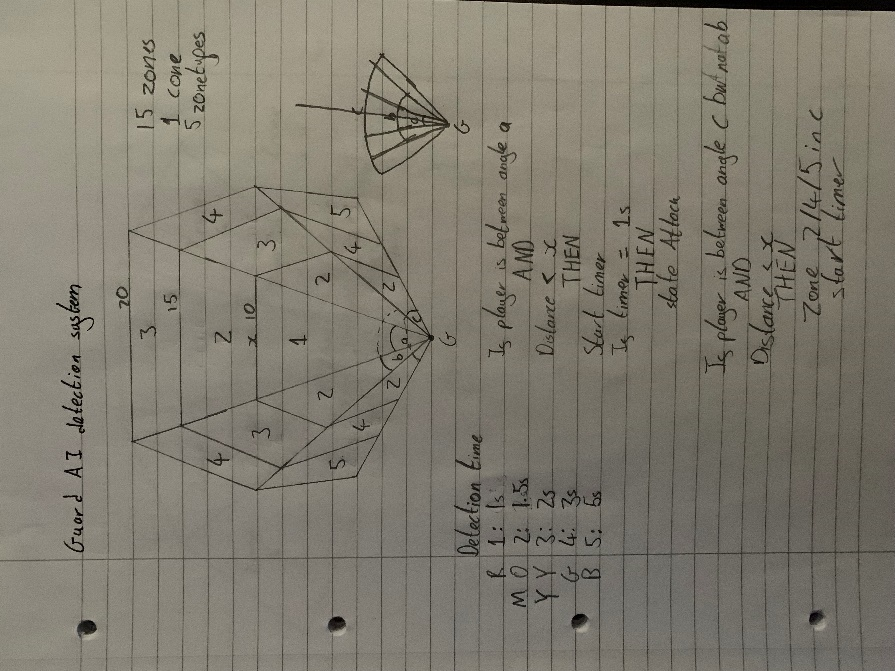 Guard AI detection system
15 zones
1 cone
5 zonetypes
20
3
15
4
4
2
3
3
x 10
1
2
2
5
4
2
2
4
5
b
a
c
G
b
a
G
Detection time
R 1: 1s
M O 2: 1.5s
Y Y 3: 2s
G 4: 3s
B 5: 5s
Is player is between angle a
AND
Distance < x
THEN
Start timer
Is timer = 1s
THEN
state Attack
Is player is between angle c but not ab
AND
Distance < x
THEN
Zone 2/4/5 in c
start timer